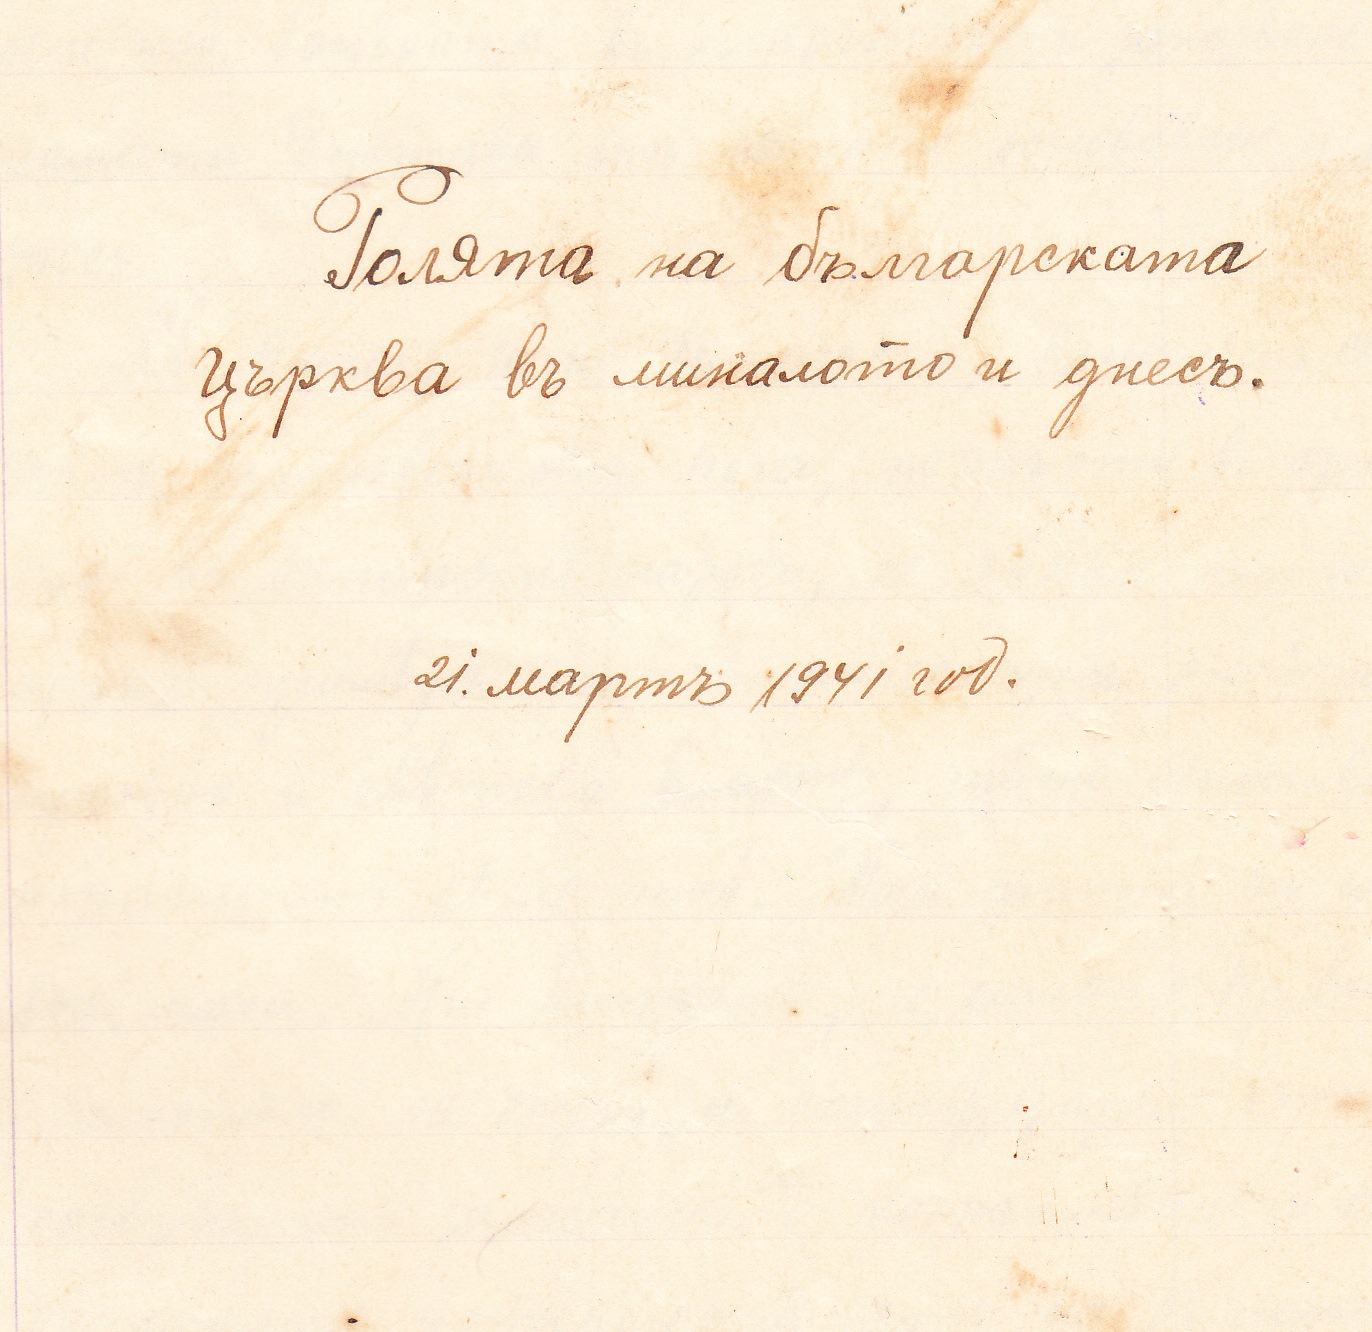 Ролята на българската
църква въ миналото и днесъ.
21. мартъ 1941 год.